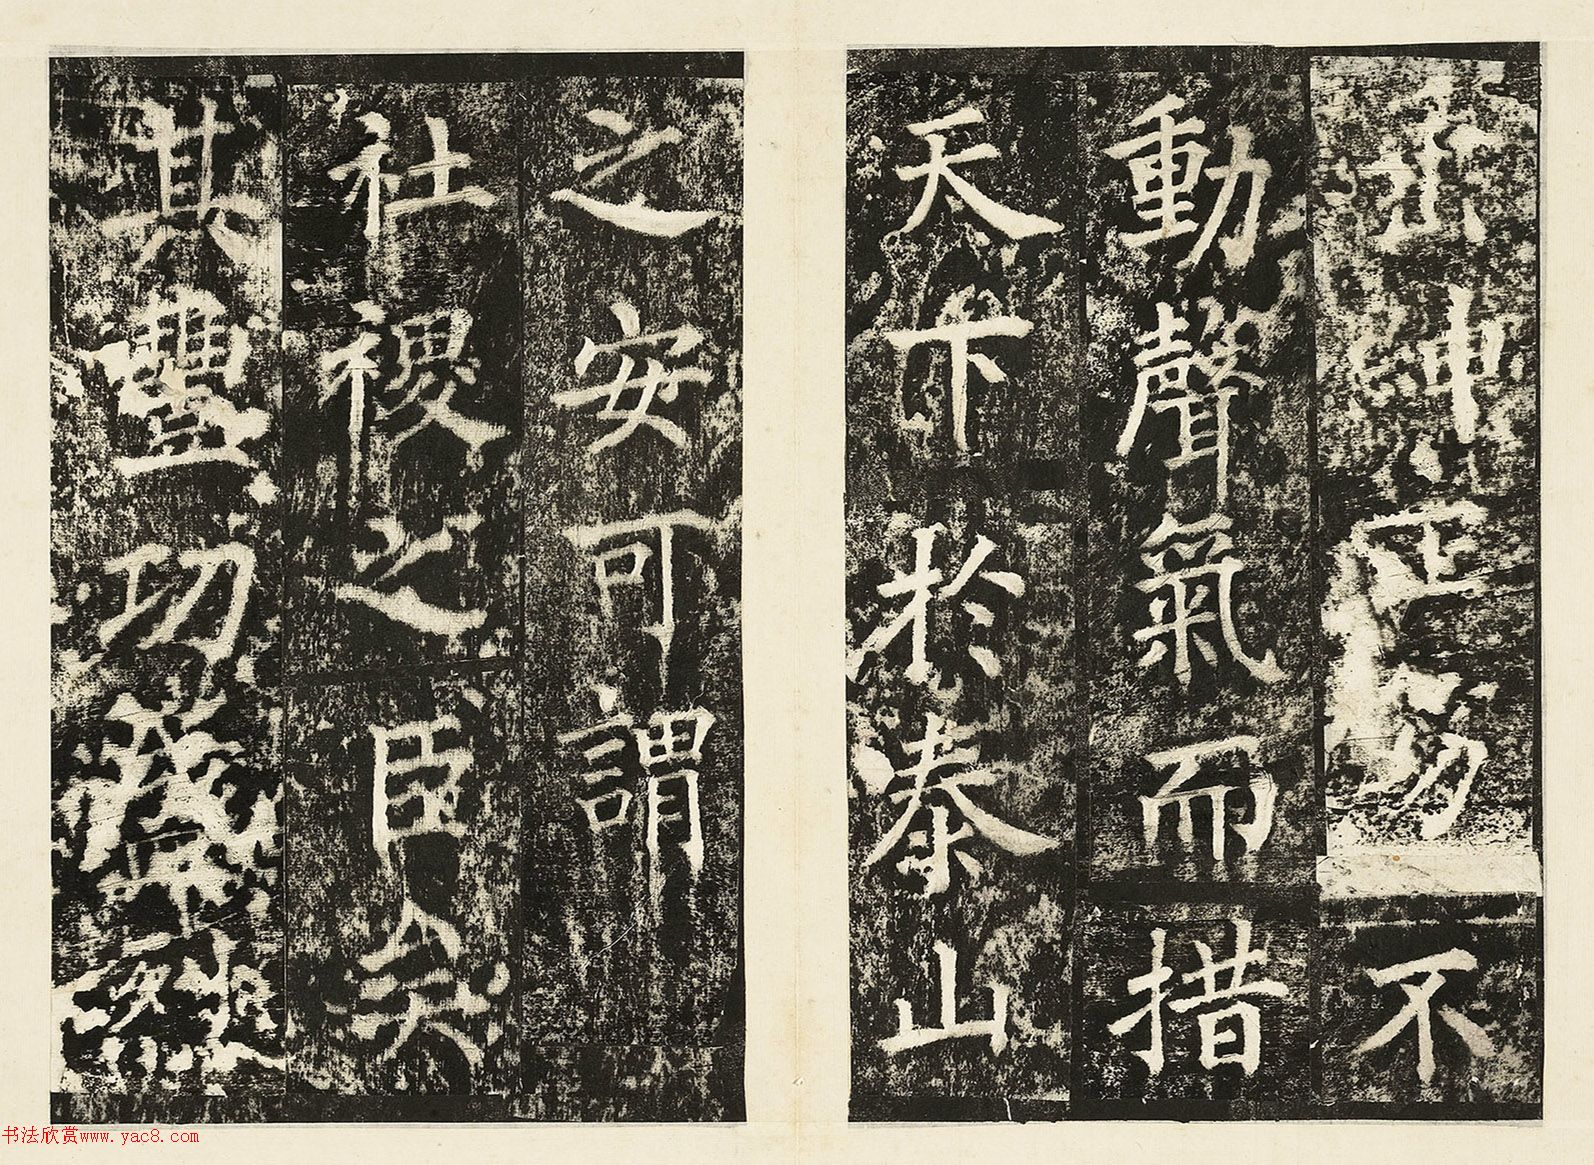 垂紳正笏不
動聲氣而措
天下於泰山
之安可謂
社稷之臣矣
其豐功盛烈
书法欣赏www.yac8.com